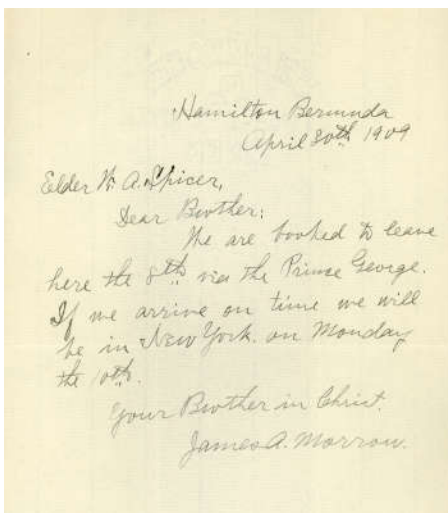 Hamilton Bermuda
April 30th 1909
Elder W. A. Spicer,
Dear Brother:
We are booked to leave
here the 8th via the Prince George.
If we arrive on time we will
be in New York. on Monday
the 10th.
Your Brother in Christ.
James A. Morrow.